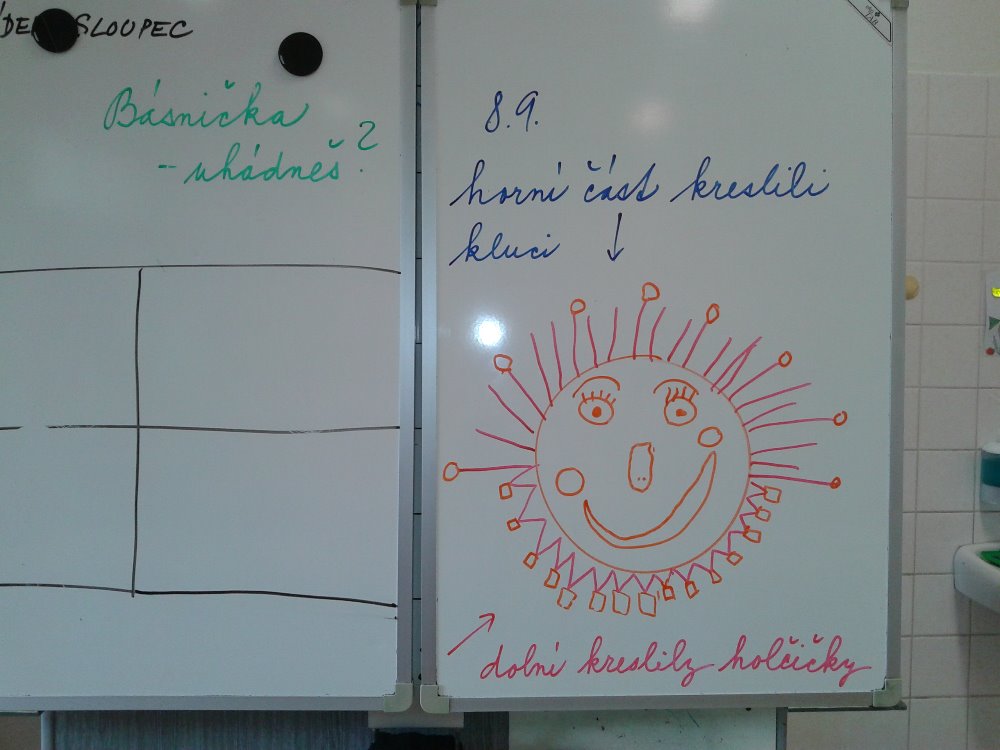 SLOUPEC
Básnička
- uhádneš?
8.9.
horní část kreslili
kluci
dolní kreslily holčičky